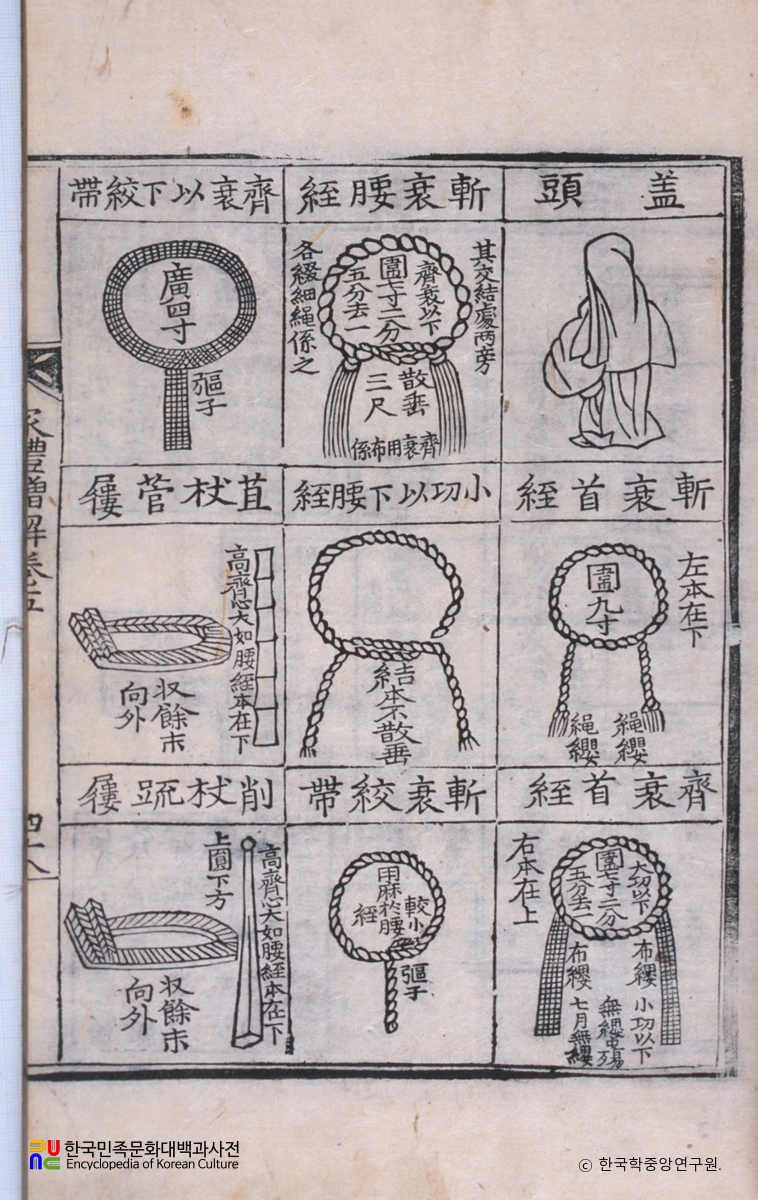 盖頭
斬衰首絰
左本在下
圍九寸
繩纓
繩纓
齊衰首絰
右本在上
大功以下
圍七寸二分
五分去一
布纓
布纓
小功以下
無纓
七月無纓
斬衰腰絰
其交結處两旁
各綴細繩係之
齊衰以下
圍七寸二分
五分去一
散垂
三尺
齊衰用布係
小功以下腰絰
結本不散垂
斬衰絞帶
用麻於腰
絰
較小
彄子
齊衰以下絞帶
廣四寸
彄子
苴杖菅屨
高齊心大如腰絰本在下
収餘末
向外
削杖䟽屨
高齊心大如腰絰本在下
上圓下方
収餘末
向外
家禮增解卷五
四十八
한국민족문화대백과사전
Encyclopedia of Korean Culture
© 한국학중앙연구원.